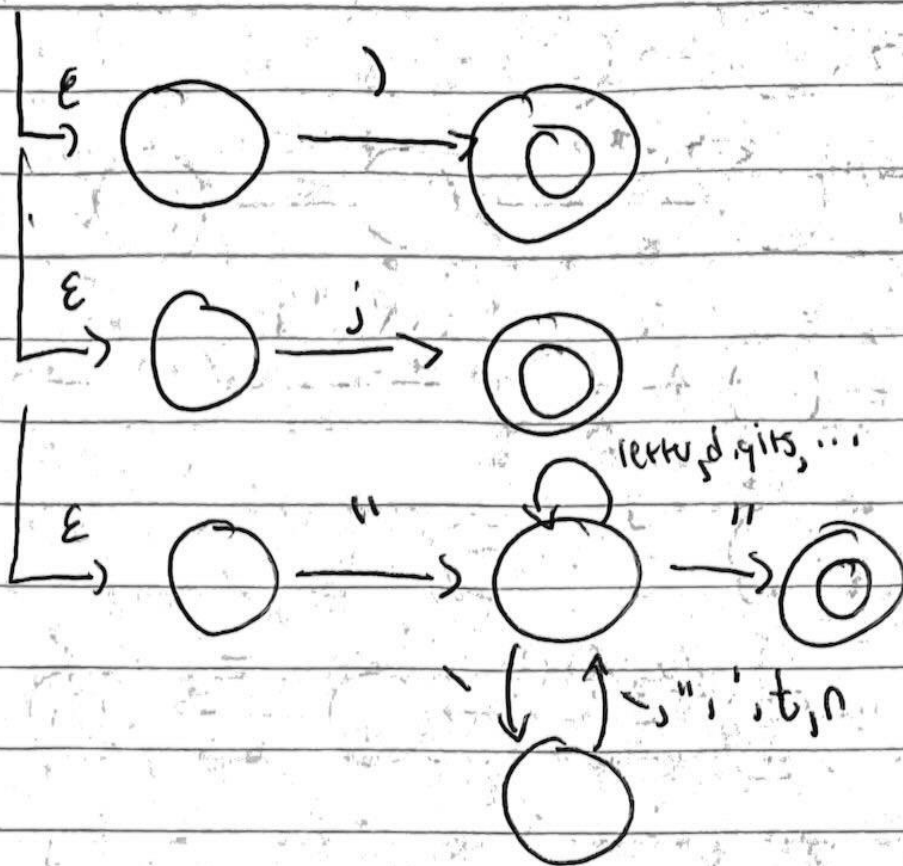 ε )
ε ;
letter, digits, ...
ε " "
\ \, ", ', t, n